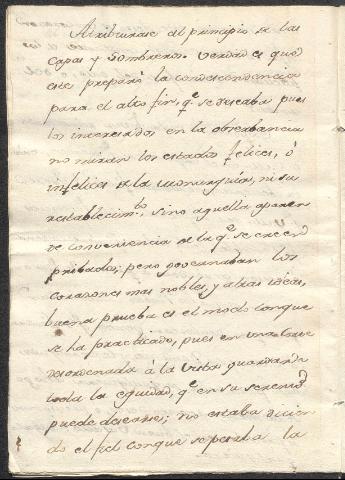 Atribuiase al principio de las
capas y Sombreros. Verdad es que
este preparò la condescendencia
para el alto fin, qe. se deseaba pues
los interesados en la observancia
no miran los estados felices, ó
infelices de la monarquias, ni su
restablecimto., sino aquella aparen
de conveniencia de la qe. se creen
pribados; pero governaban los
corazones mas nobles, y altas ideas,
buena prueba es el modo conque
se ha practicado, pues en una
desordenada á la vista guardando
toda la equidad, qe. en su
puede desearse; no estaba dicien
do el fiel conque se pesaba la